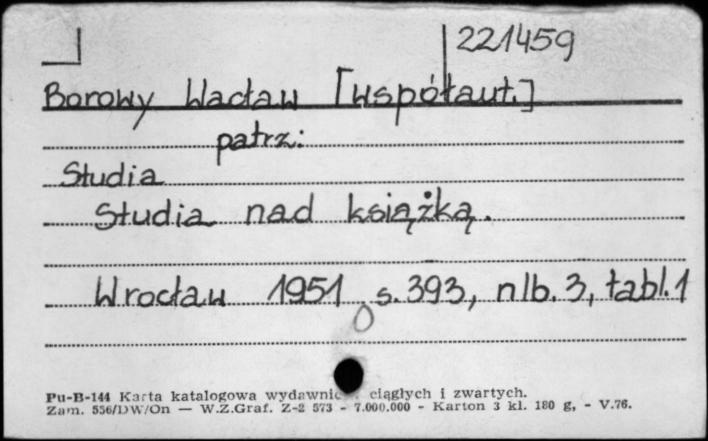 221459
Borowy Wacław [współaut.]
patrz:
Studia
Studia nad książką.
Wrocław 1951 s. 393, nlb. 3, tabl. 1
Pu-B-144 Karta katalogowa wydawnic ciągłych i zwartych.
Zam. 556/DW/On — W.Z.Graf. Z-2 573 - 7.000.000 - Karton 3 kl. 180 g, - V.76.